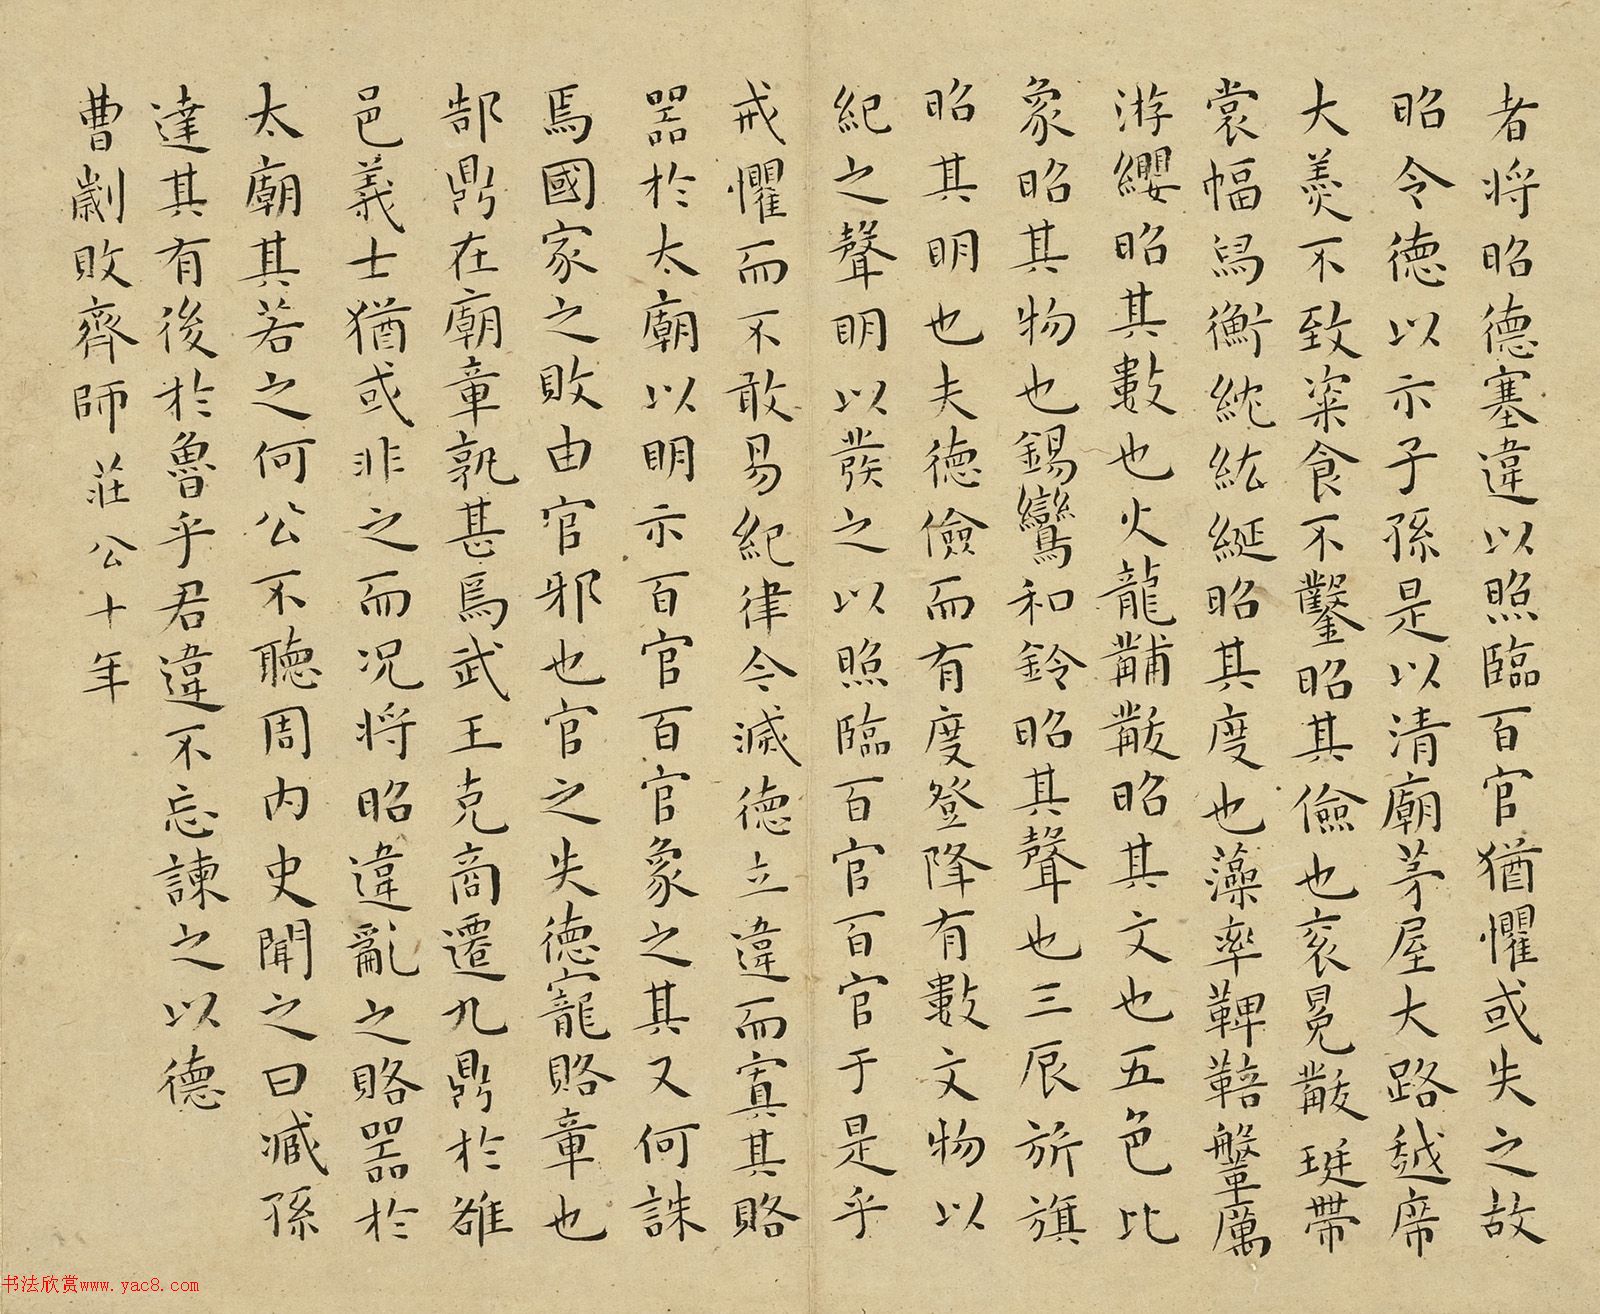 者将昭德塞違以照臨百官猶懼或失之故
昭令德以示子孫是以清廟茅屋大路越席
大羹不致粢食不鑿昭其儉也袞冕黻珽帶
裳幅舄衡紞紘綖昭其度也藻率鞞鞛鞶厲
游纓昭其數也火龍黼黻昭其文也五色比
象昭其物也鍚鸞和鈴昭其聲也三辰旂旗
昭其明也夫德儉而有度登降有數文物以
紀之聲明以發之以照臨百官百官于是乎
戒懼而不敢易紀律今滅德立違而寘其賂
器於太廟以明示百官百官象之其又何誅
焉國家之敗由官邪也官之失德寵賂章也
郜鼎在廟章孰甚焉武王克商遷九鼎於雒
邑義士猶或非之而况将昭違亂之賂器於
太廟其若之何公不聽周内史聞之曰臧孫
達其有後於魯乎君違不忘諫之以德
曹劌敗齊師 莊公十年
书法欣赏www.yac8.com